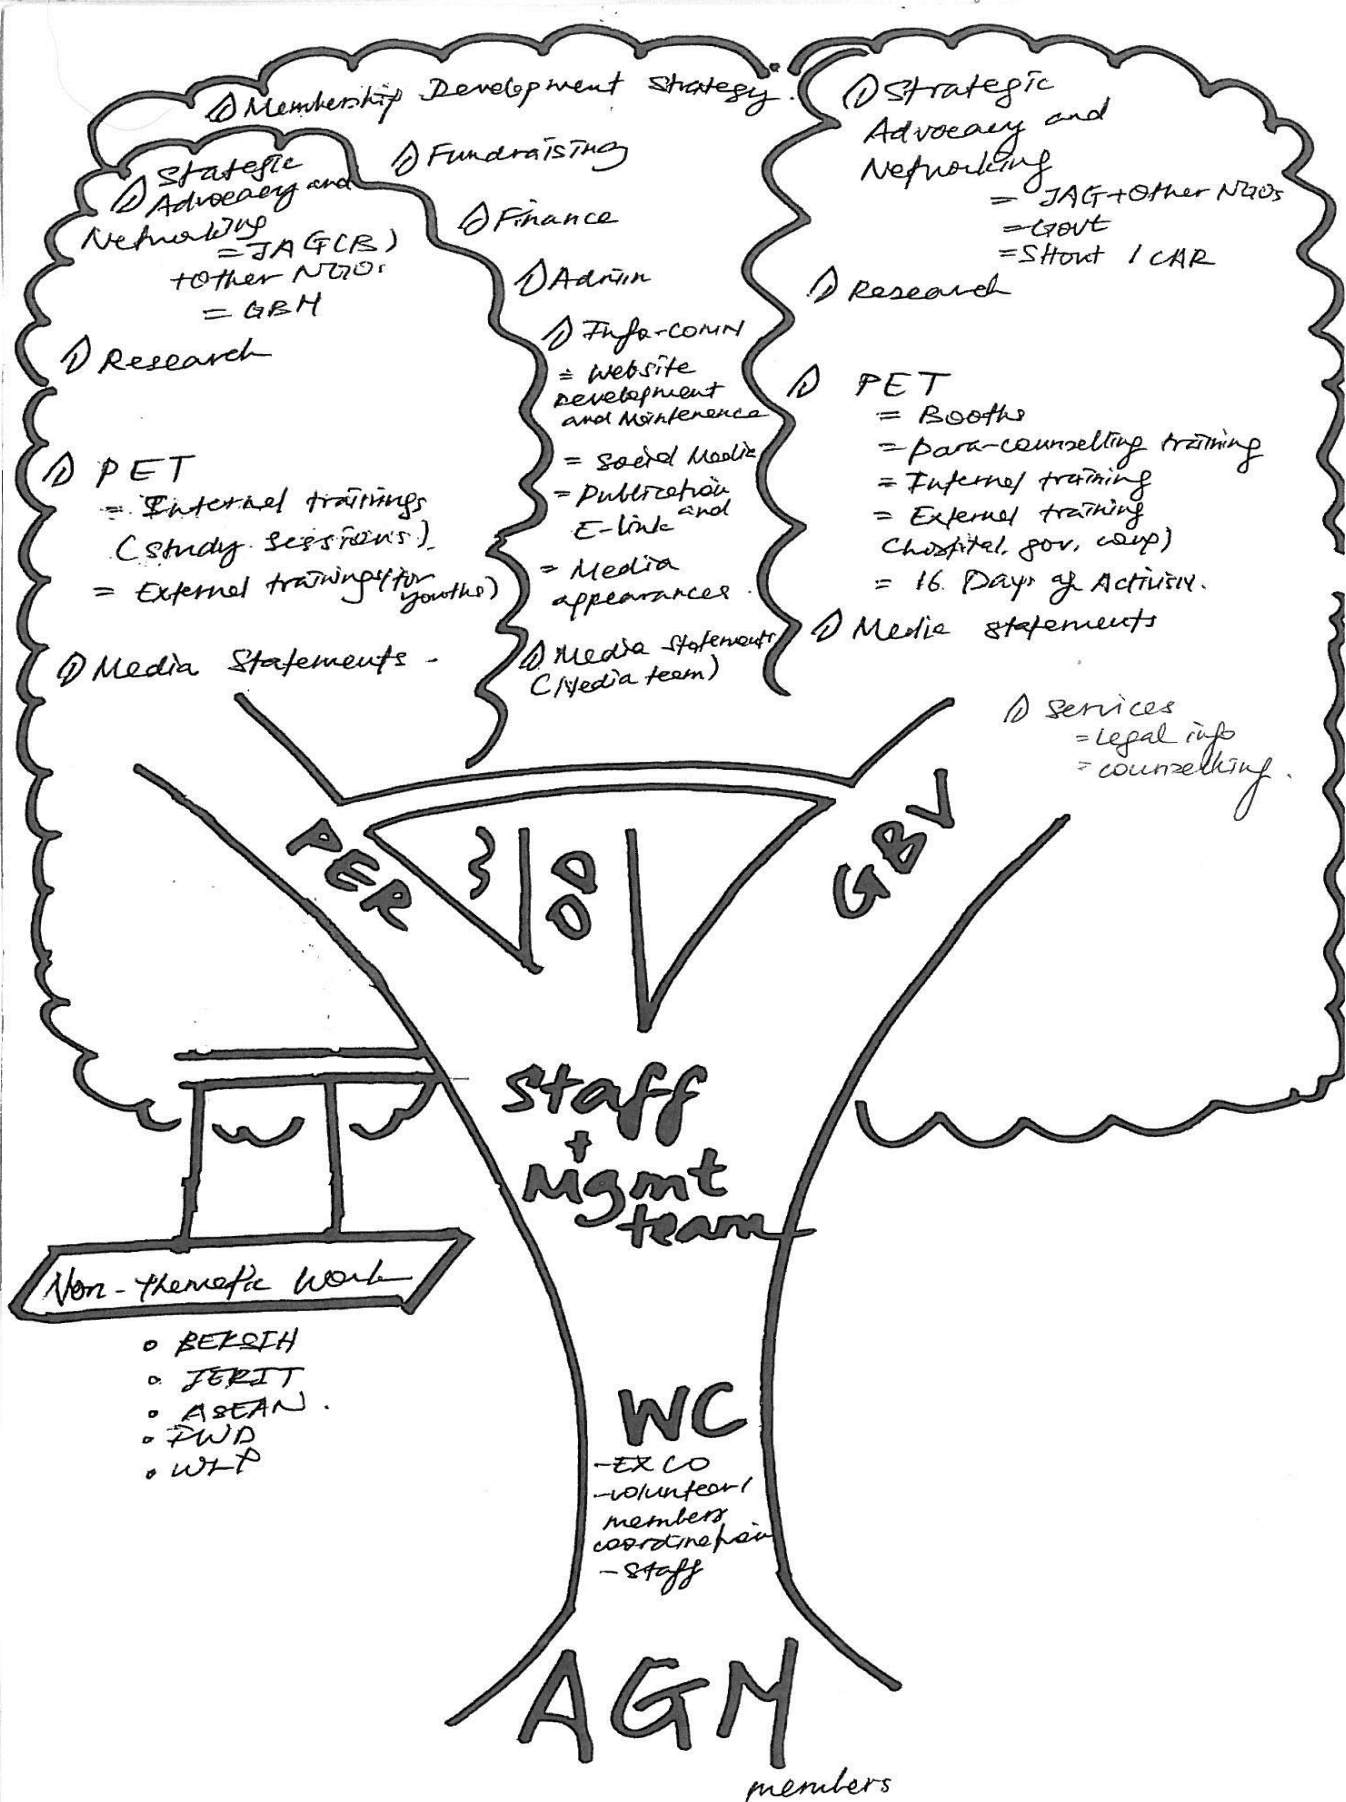 Membership Development Strategy.
Fundraising
Finance
Admin
Info-comm
= Website
Development
and Maintenence
= Social Media
= Publication
and
E-link
= Media
appearances.
Media statements
(Media team)
Stategic
Advocacy and
Networking
= JAG (CB)
+ Other NGOs
= GBM
Research
PET
= Internal trainings
(study sessions).
= External trainings (for
youths)
Media Statements -
Strategic
Advocacy and
Networking
= JAG + Other NGOs
= Govt
= SHout / CAR
Research
PET
= Booths
= para-counselling training
= Internal training
= External training
(hospital, gov, coup)
= 16 Days of Activism.
Media statements
Services
= Legal info
= counselling.
PER
OD
GBV
Staff
+
Mgmt
team
Non-thematic Work
• BERSIH
• JERIT
• ASEAN.
• FWD
• WLP
WC
- EXCO
- volunteer /
members
coordination
- staff
AGM
members